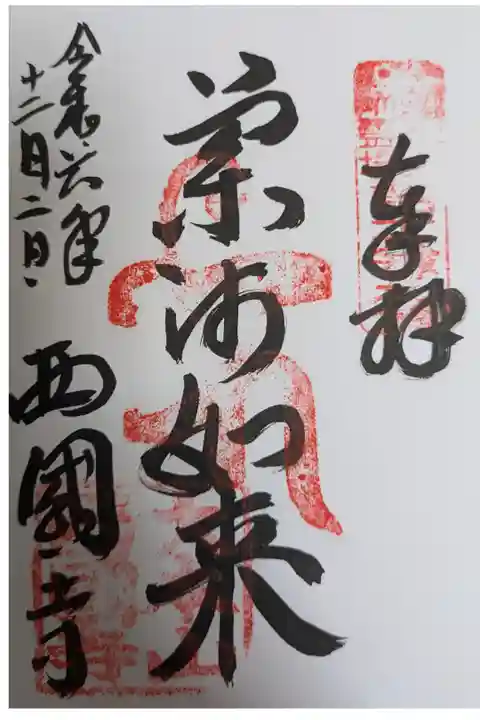 奉拝
薬師如来
令和六年
十二月二日
西國寺